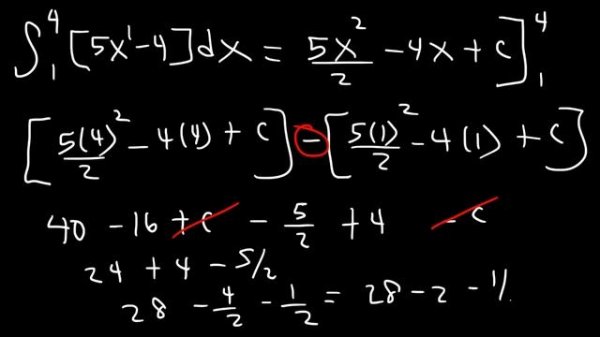 ∫₁⁴ [5x¹-4]dx = 5x²/2 - 4x + c]₁⁴
[5(4)²/2 - 4(4) + c] - [5(1)²/2 - 4(1) + c]
40 - 16 + c - 5/2 + 4 - c
24 + 4 - 5/2
28 - 4/2 - 1/2 = 28 - 2 -